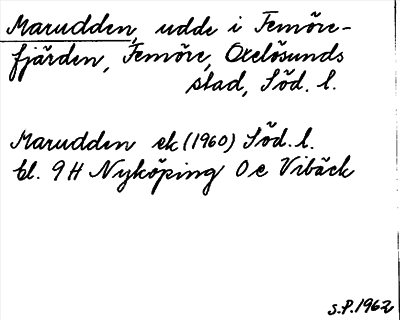 Marudden, udde i Femöre-
fjärden, Femöre, Oxelösunds
stad, Söd. l.
Marudden ek (1960) Söd. l.
bl. 9 H Nyköping O e Vibäck
S.P. 1962